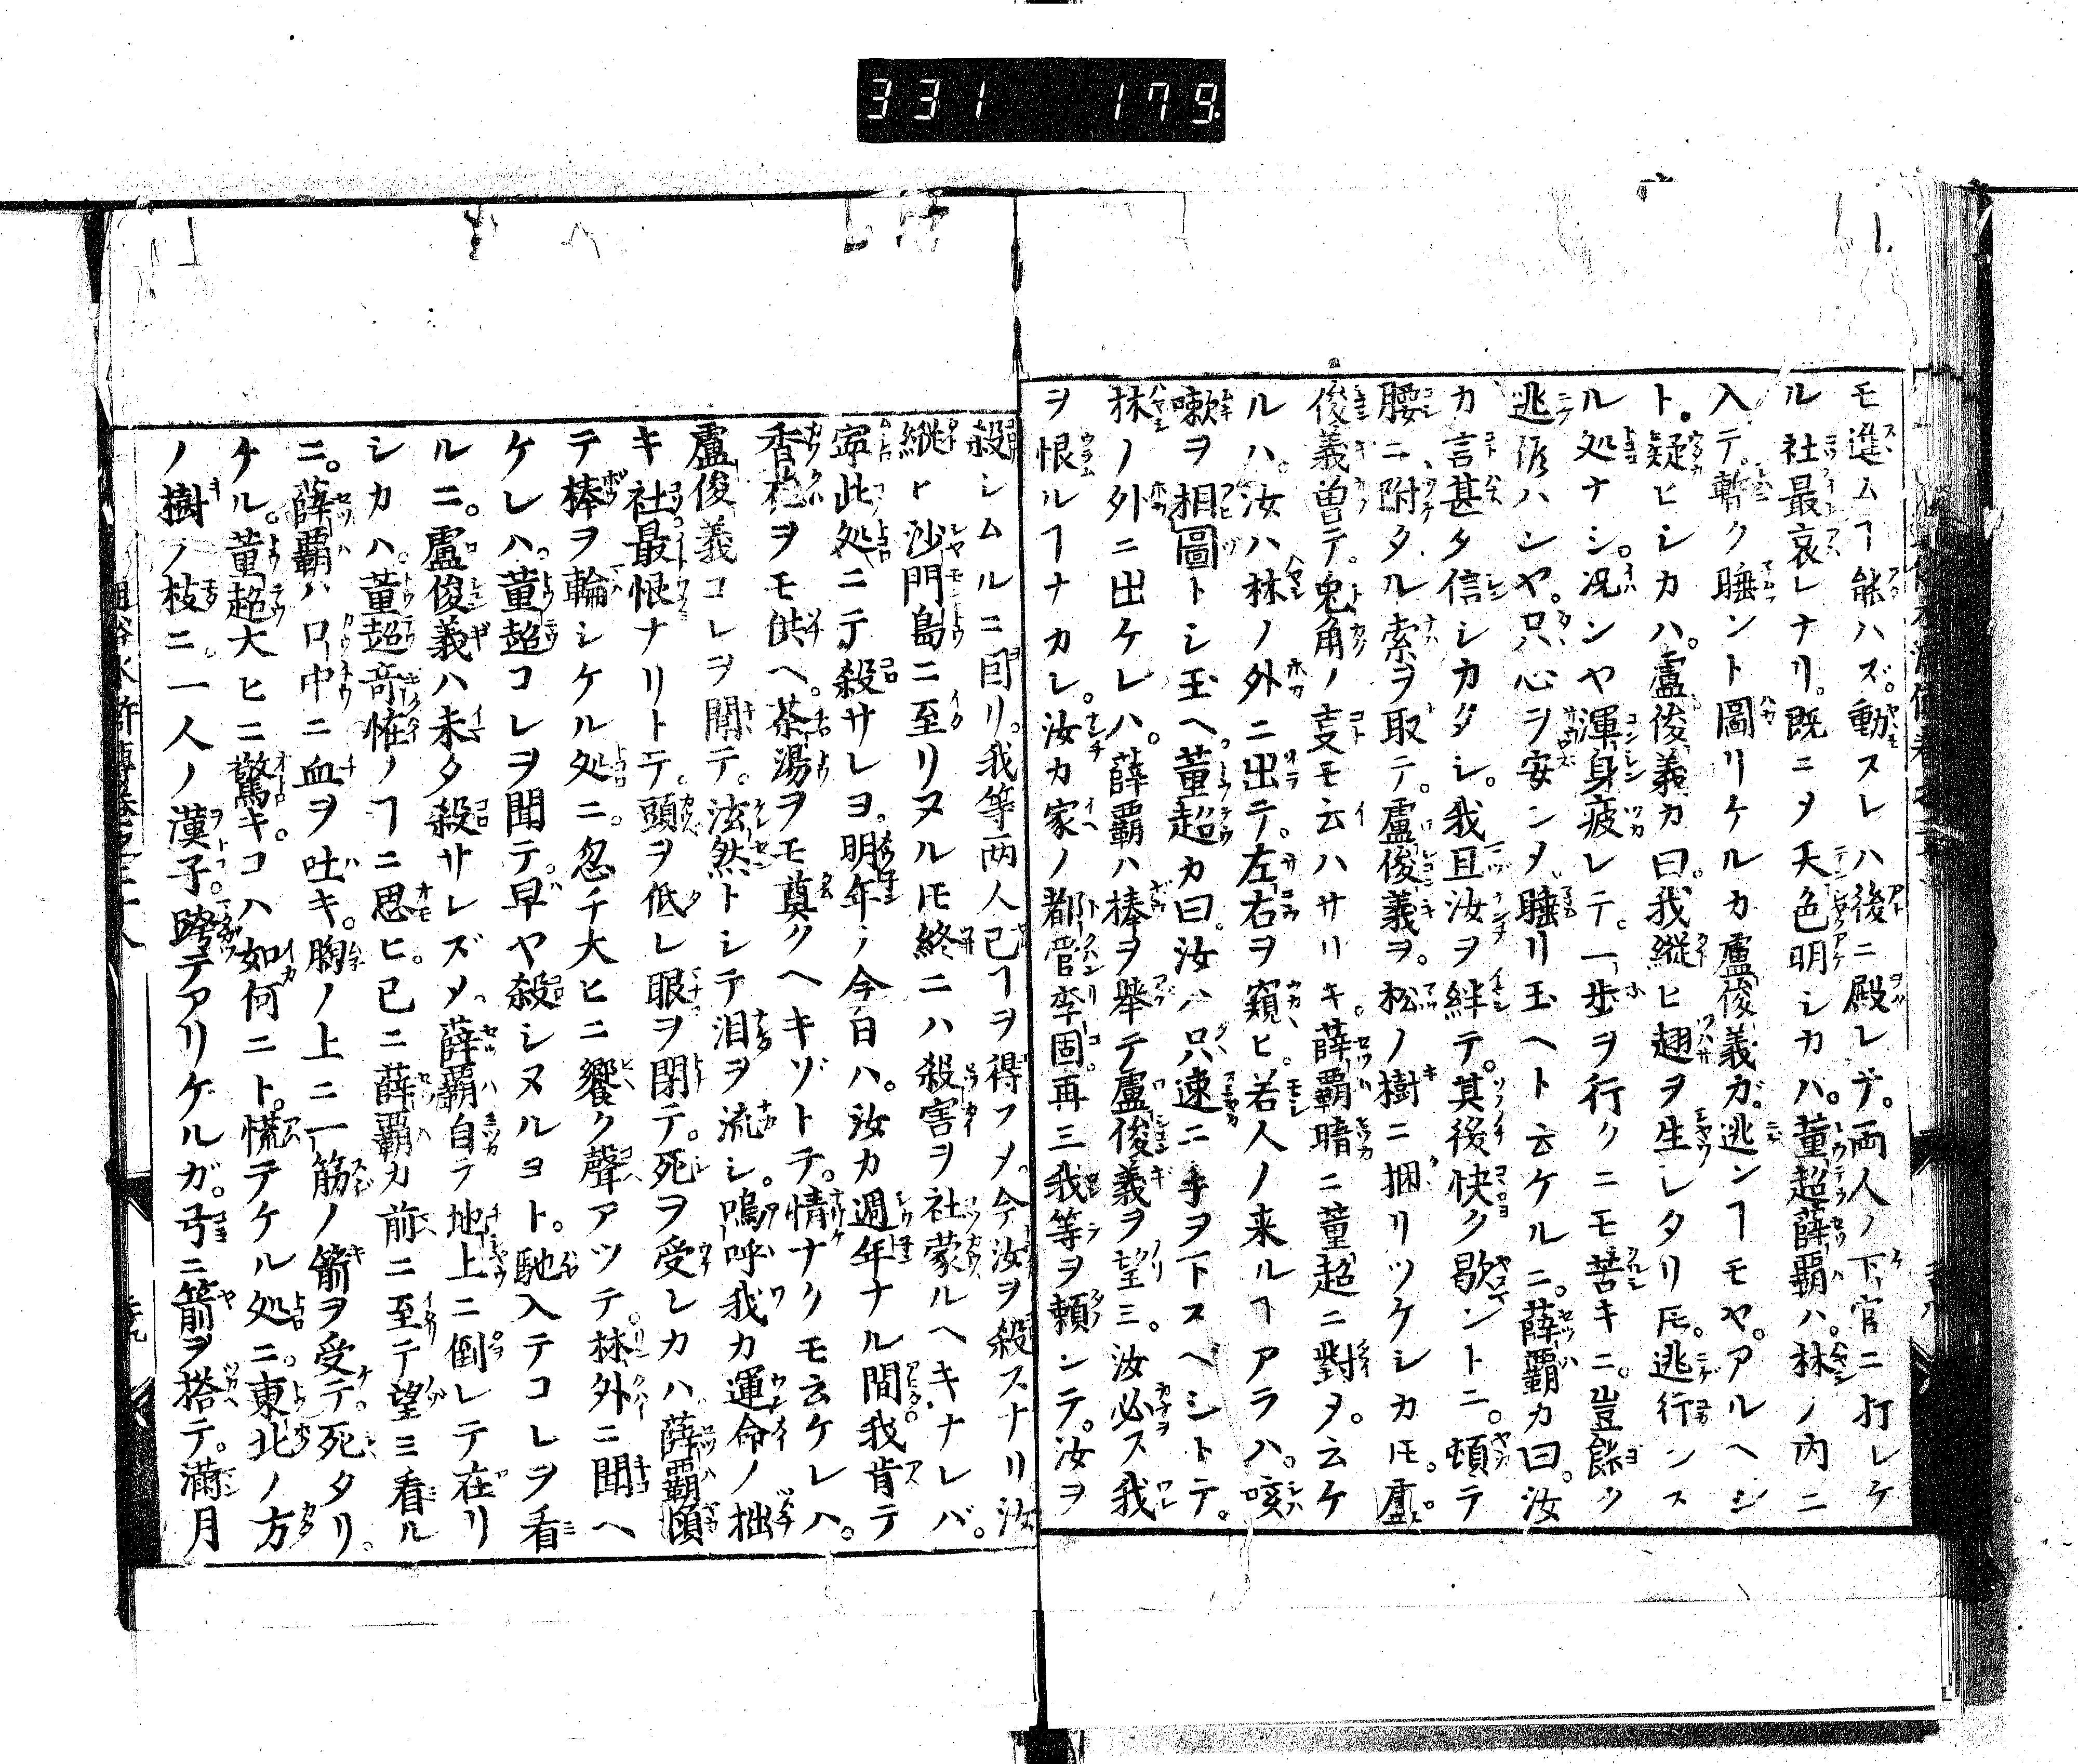 331 179
モ進ムヿ能ハズ。動スレハ後ニ殿レテ。両人ノ下官ニ打レケ
ル社最哀レナリ。既ニ〆天色明シカハ。董超薛覇ハ。林ノ内ニ
入テ。暫ク睡ント圖リケルカ盧俊義ガ。逃ンヿモヤ。アルヘシ
ト。疑ヒシカハ。盧俊義カ曰。我縦ヒ翅ヲ生シタリ𪜈。逃行ンス
ル処ナシ。況ンヤ渾身疲レテ。一歩ヲ行クニモ苦キニ。豈能ク
逃ハンヤ。只心ヲ安ン〆睡リ玉ヘト云ケルニ。薛覇カ曰。汝
カ言甚タ信シカタシ。我且汝ヲ絆テ。其後快ク歇ントニ。頓テ
腰ニ附タル索ヲ取テ。盧俊義ヲ。松ノ樹ニ捆リツケシカ𪜈。盧
俊義曽テ。兎角ノ支モ云ハサリキ。薛覇暗ニ董超ニ對〆。云ケ
ルハ。汝ハ林ノ外ニ出テ。左右ヲ窺ヒ。若人ノ来ルヿアラハ。咳
嗽ヲ相圖トシ玉ヘ。董超カ曰。汝ハ只速ニ手ヲ下スヘシトテ。
林ノ外ニ出ケレハ。薛覇ハ棒ヲ舉テ盧俊義ヲ望ミ。汝必ス我
ヲ恨ルヿナカレ。汝カ家ノ都管李固。再三我等ヲ頼ンテ。汝ヲ
殺シムルニ因リ。我等両人已ヿヲ得フ〆。今汝ヲ殺スナリ汝
縦ト沙門島ニ至リヌル𪜈終ニハ殺害ヲ社蒙ルヘキナレバ。
寧此処ニテ殺サレヨ。明年ノ今日ハ。汝カ週年ナル間我肯テ
香花ヲモ供ヘ。茶湯ヲモ奠クヘキゾトテ。情ナクモ云ケレハ。
盧俊義コレヲ聞テ。泫然トシテ泪ヲ流シ。嗚呼我カ運命ノ拙
キ社最恨ナリトテ。頭ヲ低レ眼ヲ閉テ。死ヲ受シカハ。薛覇頓
テ棒ヲ輪シケル処ニ。忽チ大ヒニ饗ク聲アツテ。林外ニ聞ヘ
ケレハ。董超コレヲ聞テ。早ヤ殺シヌルヨト。馳入テコレヲ看
ルニ。盧俊義ハ未タ殺サレズ〆。薛覇自ラ地上ニ倒レテ在リ
シカハ。董超竒恠ノヿニ思ヒ。已ニ薛覇カ前ニ至テ望ミ看ル
ニ。薛覇ハ口中ニ血ヲ吐キ。胸ノ上ニ一筋ノ箭ヲ受テ。死タリ。
ケル。董超大ヒニ驚キ。コハ如何ニト。慌テケル処ニ。東北ノ方
ノ樹ノ枝ニ一人ノ漢子。踏テアリケルガ。弓ニ箭ヲ搭テ。滿月